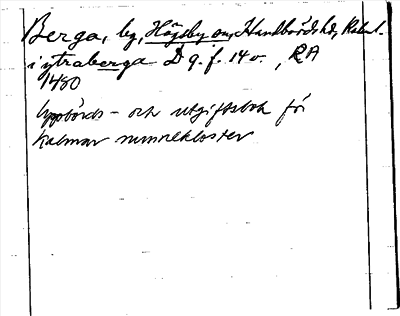 Berga, by, Högsby sn, Handbörds hd, Kalm.
i ytraberga D 9. f. 14 v. , RA
1480
Uppbörds- och utgiftsbok för
Kalmar nunnekloster